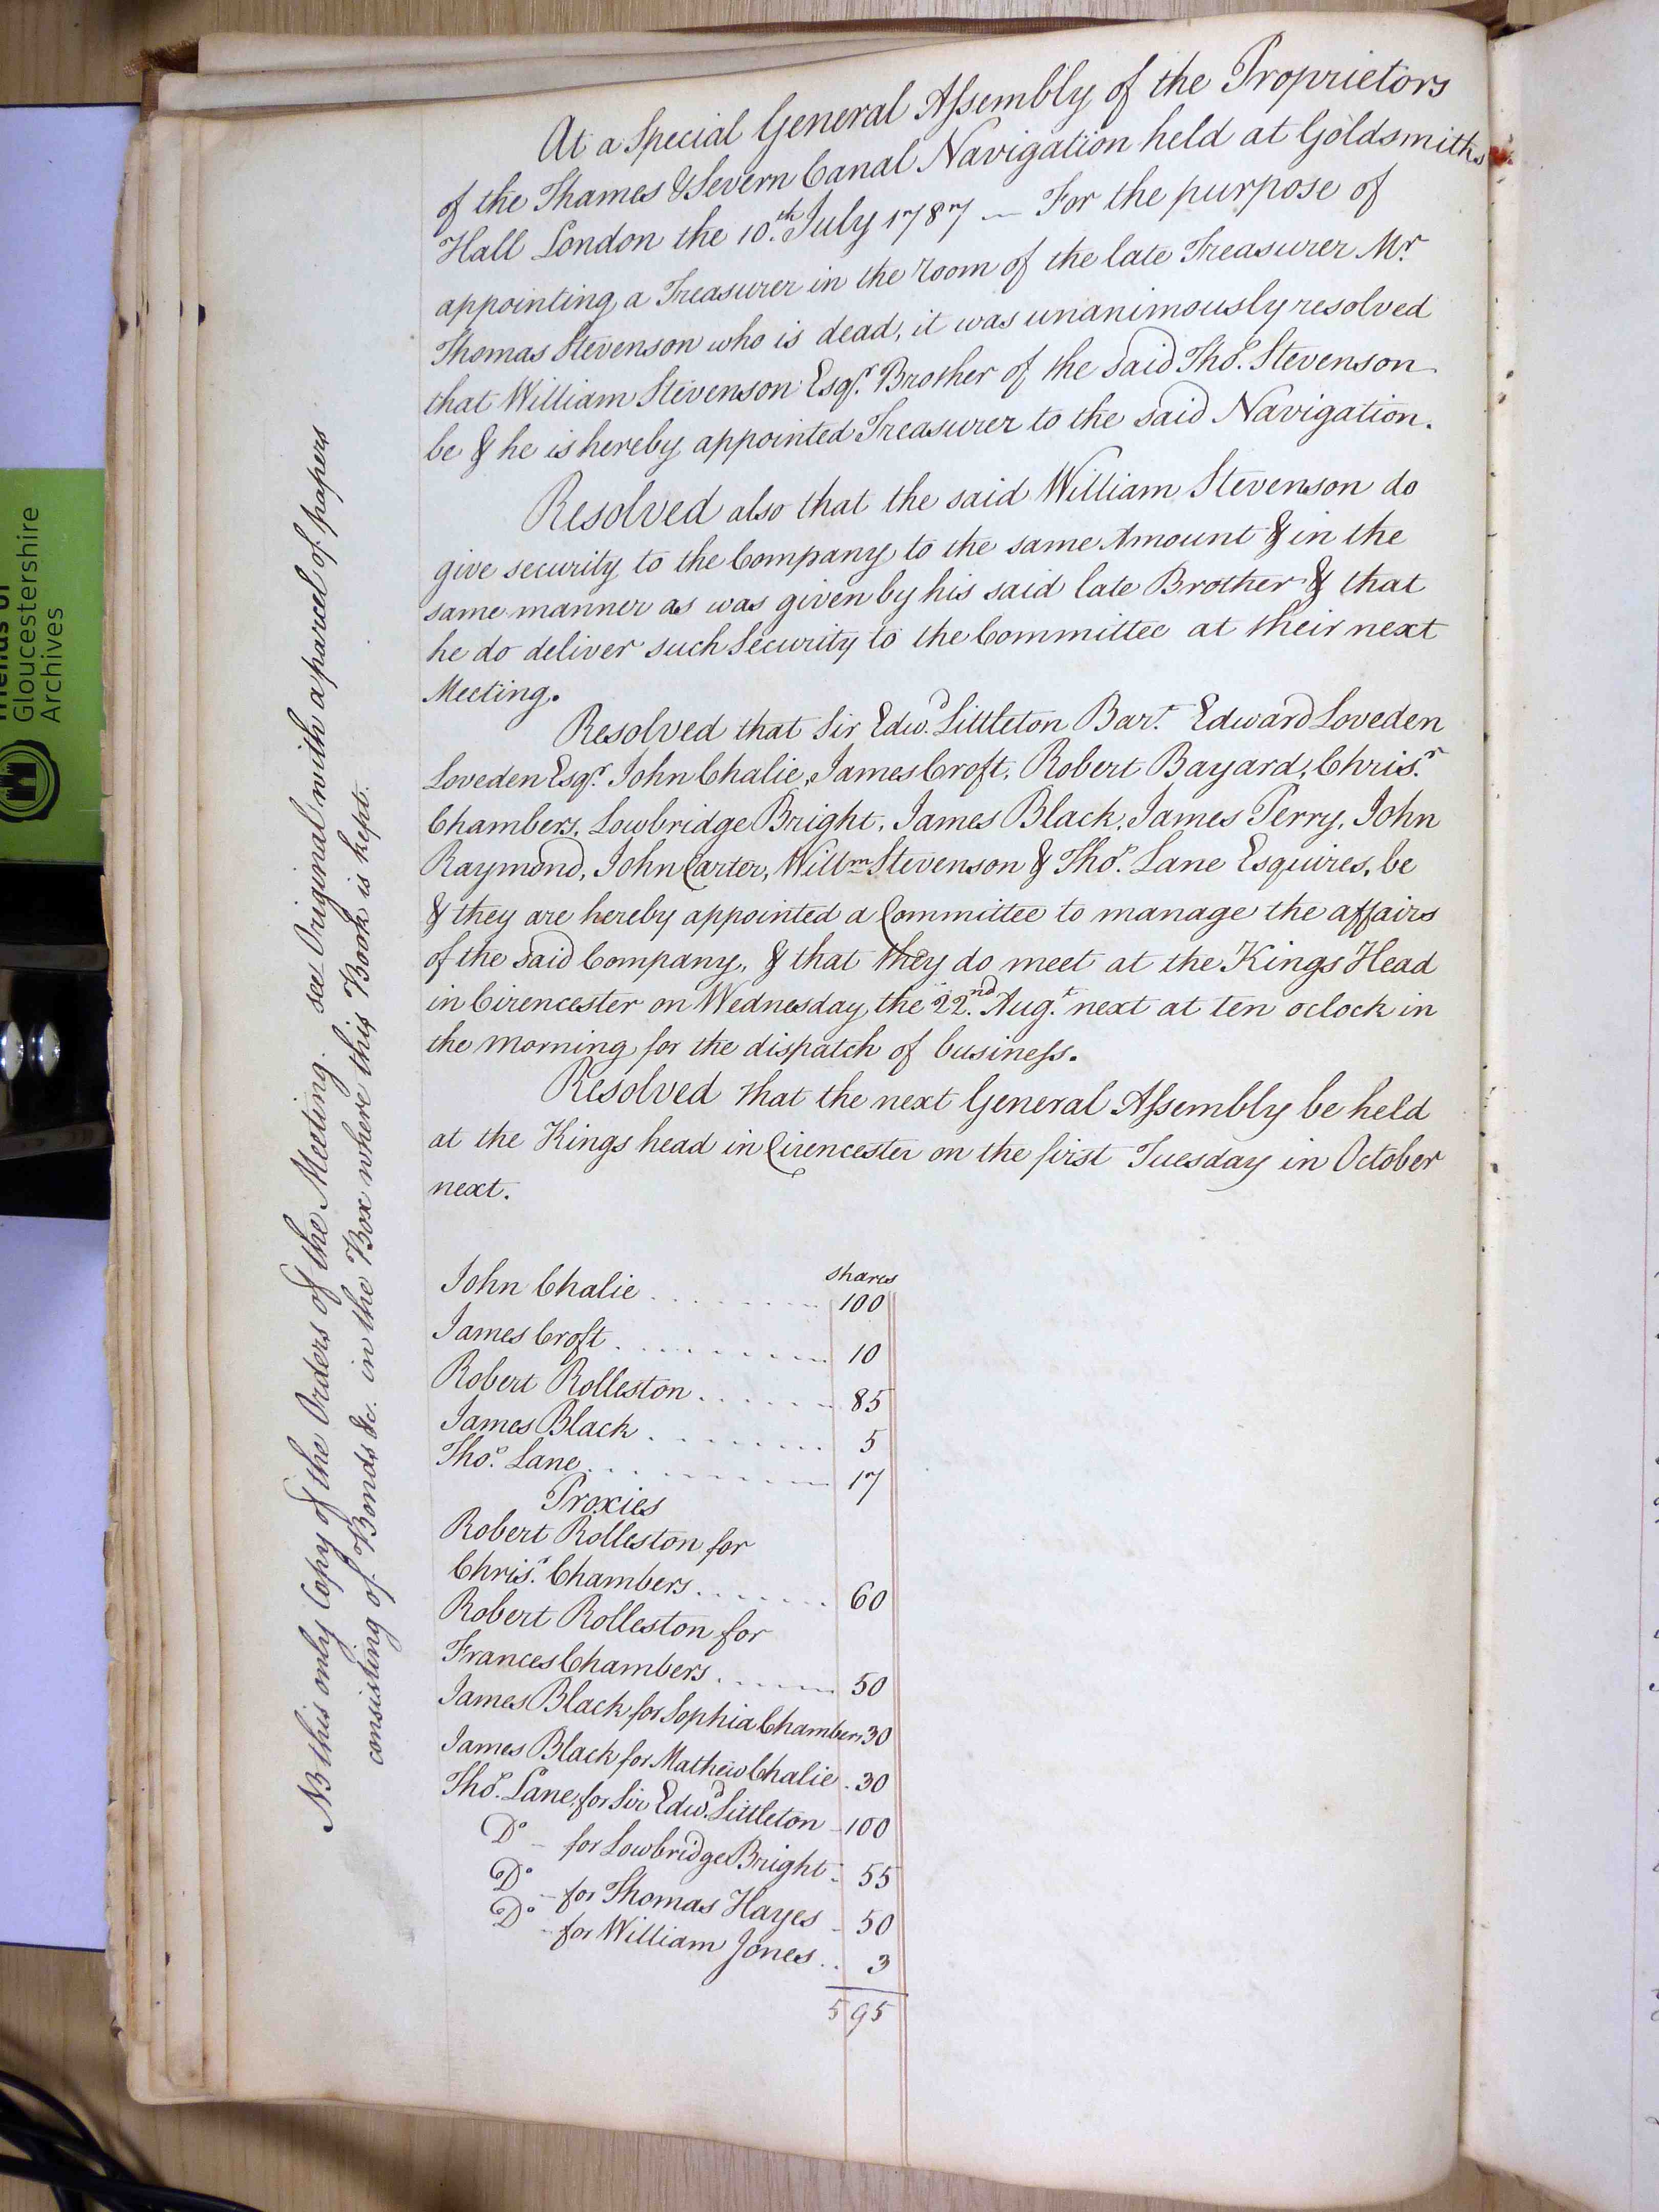 At a Special General Assembly of the Proprietors
of the Thames & Severn Canal Navigation held at Goldsmiths
Hall London the 10.th July 1787 — For the purpose of
appointing a Treasurer in the room of the late Treasurer Mr.
Thomas Stevenson who is dead, it was unanimously resolved
that William Stevenson Esqr. Brother of the said Thos. Stevenson
be & he is hereby appointed Treasurer to the said Navigation.
Resolved also that the said William Stevenson do
give security to the Company to the same Amount & in the
same manner as was given by his said late Brother & that
he do deliver such Security to the Committee at their next
Meeting.
Resolved that Sir Edwd. Littleton Bart. Edward Loveden
Loveden Esqr. John Chalie, James Croft, Robert Bayard, Chrisr.
Chambers, Lowbridge Bright, James Black, James Perry, John
Raymond, John Carter, Willm Stevenson & Thos. Lane Esquires, be
& they are hereby appointed a Committee to manage the affairs
of the said Company, & that they do meet at the Kings Head
in Cirencester on Wednesday the 22.nd Augt. next at ten oclock in
the morning for the dispatch of business.
Resolved that the next General Assembly be held
at the Kings head in Cirencester on the first Tuesday in October
next.
shares
John Chalie . . . . . . . . 100
James Croft . . . . . . . . 10
Robert Rolleston . . . . . . 85
James Black . . . . . . . 5
Thos. Lane . . . . . . . . 17
Proxies
Robert Rolleston for
Chrisr. Chambers . . . . . . 60
Robert Rolleston for
Frances Chambers . . . . . 50
James Black for Sophia Chambers 30
James Black for Mathew Chalie . 30
Thos. Lane, for Sir Edwd. Littleton - 100
Do - for Lowbridge Bright - 55
Do - for Thomas Hayes - 50
Do - for William Jones . . 3
595
NB this only Copy of the Orders of the Meeting. see Original with a parcel of papers
consisting of Bonds &c. in the Box where this Book is kept.
Friends of
Gloucestershire
Archives